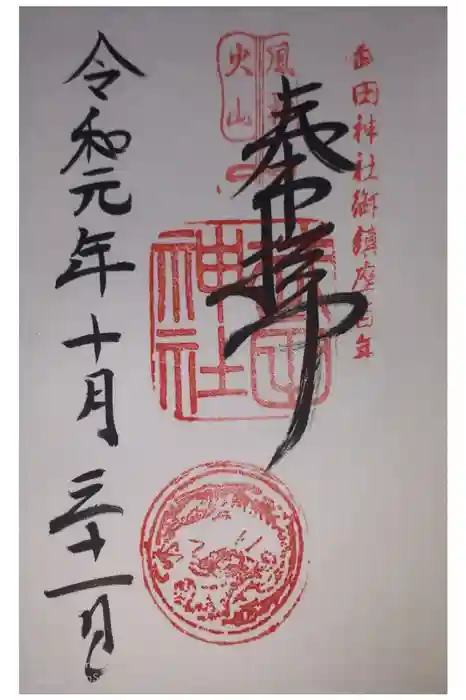 武田神社御鎮座百年
風林
火山
奉拝
武田
神社
令和元年十月三十一日